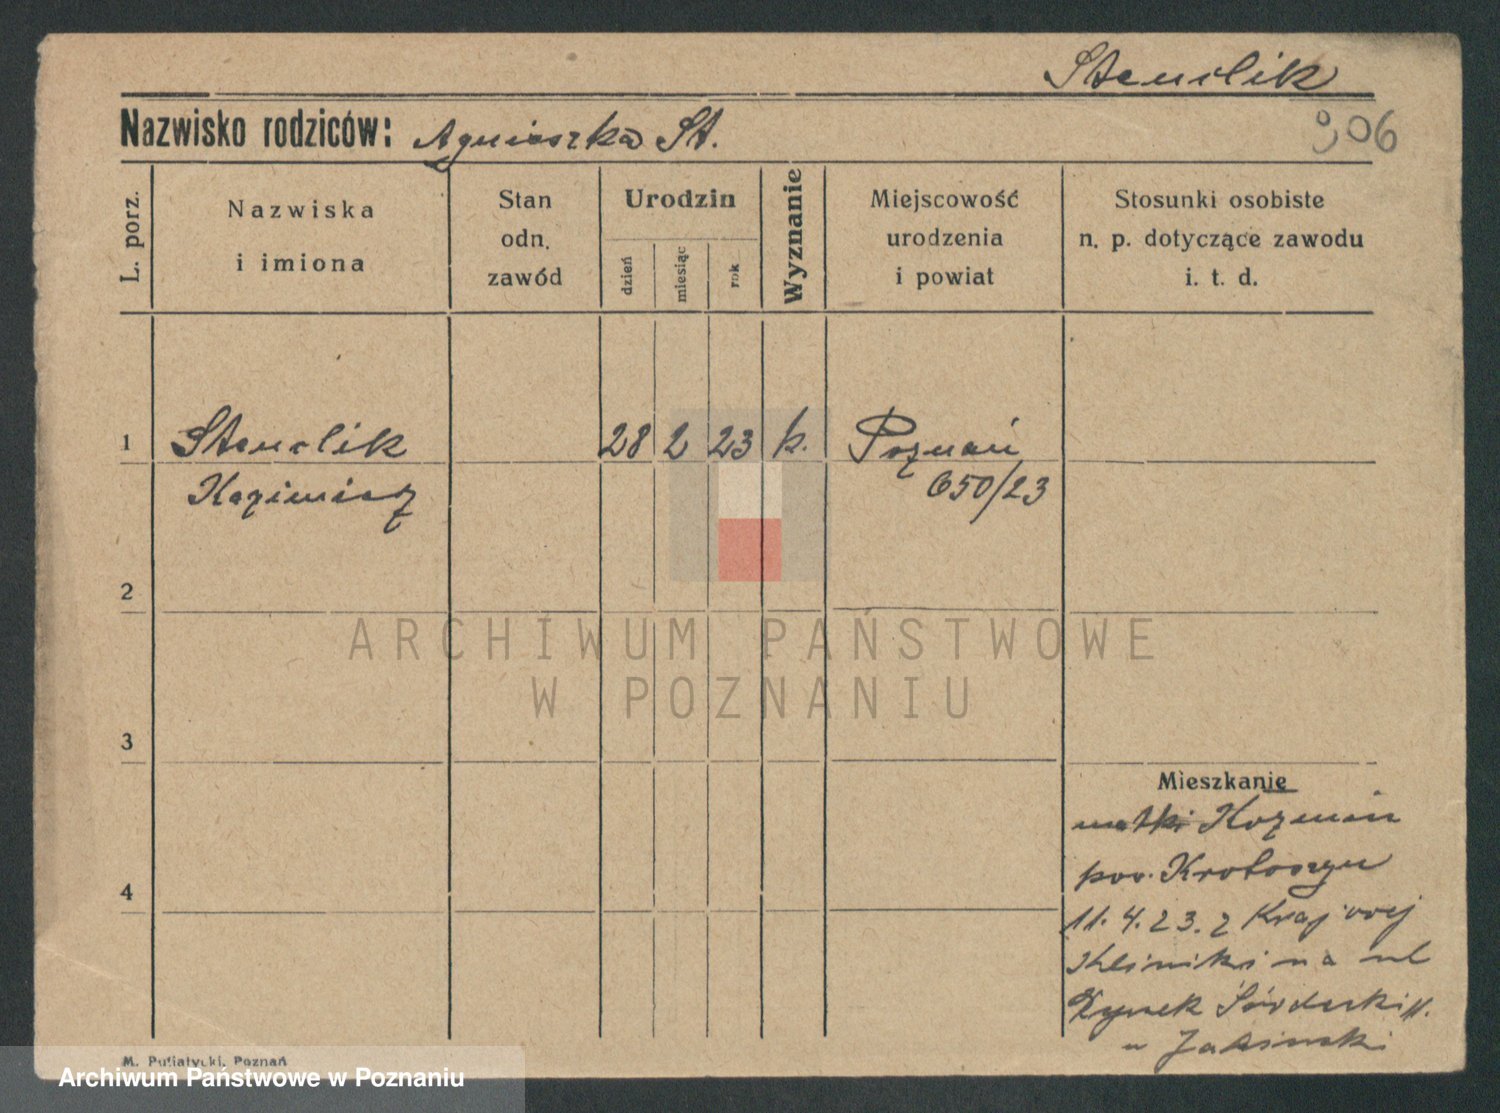 Stendlik
906
Nazwisko rodziców: Agnieszka St.
L. porz.
Nazwiska
i imiona
Stan
odn.
zawód
Urodzin
dzień
miesiąc
rok
Wyznanie
Miejscowość
urodzenia
i powiat
Stosunki osobiste
n. p. dotyczące zawodu
i. t. d.
1
28 2 23 k. Poznań
Kazimierz
650/23
2
ARCHIWUM PAŃSTWOWE
W POZNANIU
3
Mieszkanie
matki Kozmin
pow. Krotoszyn
4
11. 4. 23. z Krajowej
Kliniki na ul
Rynek Śródecki 11.
u Jasinski
M. Putiatycki, Poznań
Archiwum Państwowe w Poznaniu